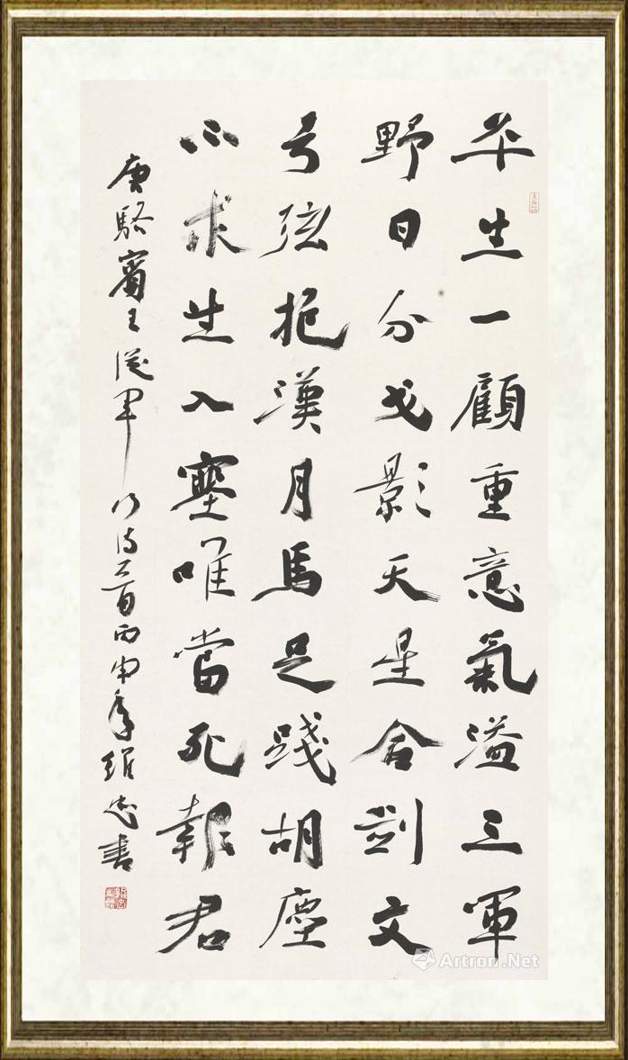 平生一顧重意氣溢三軍
野日分戈影天星合劍文
弓弦抱漢月馬足踐胡塵
不求生入塞唯當死報君
唐駱賓王從軍行詩一首丙申年維忠書
Artron.Net